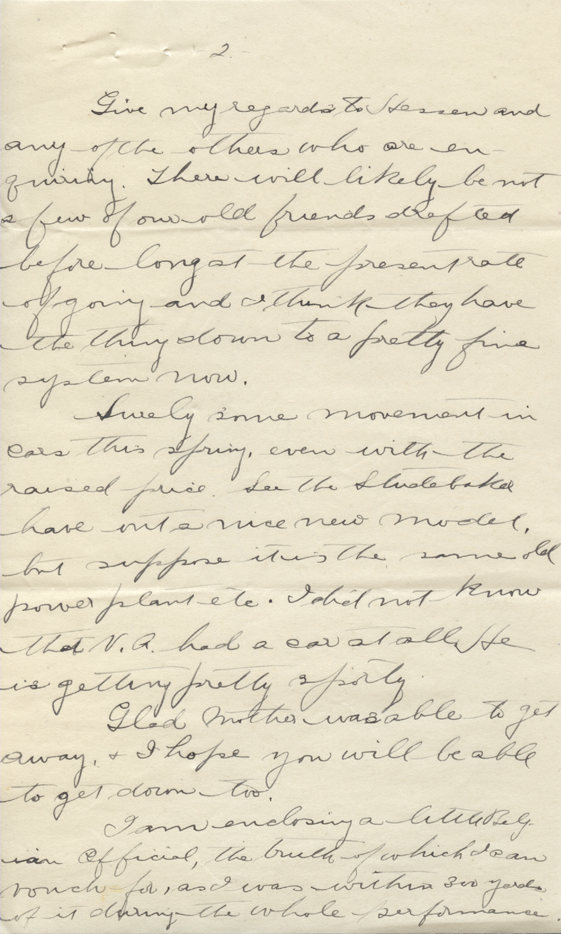 2.
Give my regards to Hessen and
any of the others who are en-
quiring. There will likely be not
a few of our old friends drafted
before long at the present rate
of going and I think they have
the thing down to a pretty fine
system now.
Surely some movement in
cars this spring, even with the
raised price. See the Studebaker
have out a nice new model,
but suppose it is the same old
power plant etc. I did not know
that V.A. had a car at all. He
is getting pretty sporty.
Glad Mother was able to get
away, & I hope you will be able
to get down too.
I am enclosing a little Belg
ian Official, the truth of which I can
vouch for, as I was within 300 yards
of it during the whole performance.